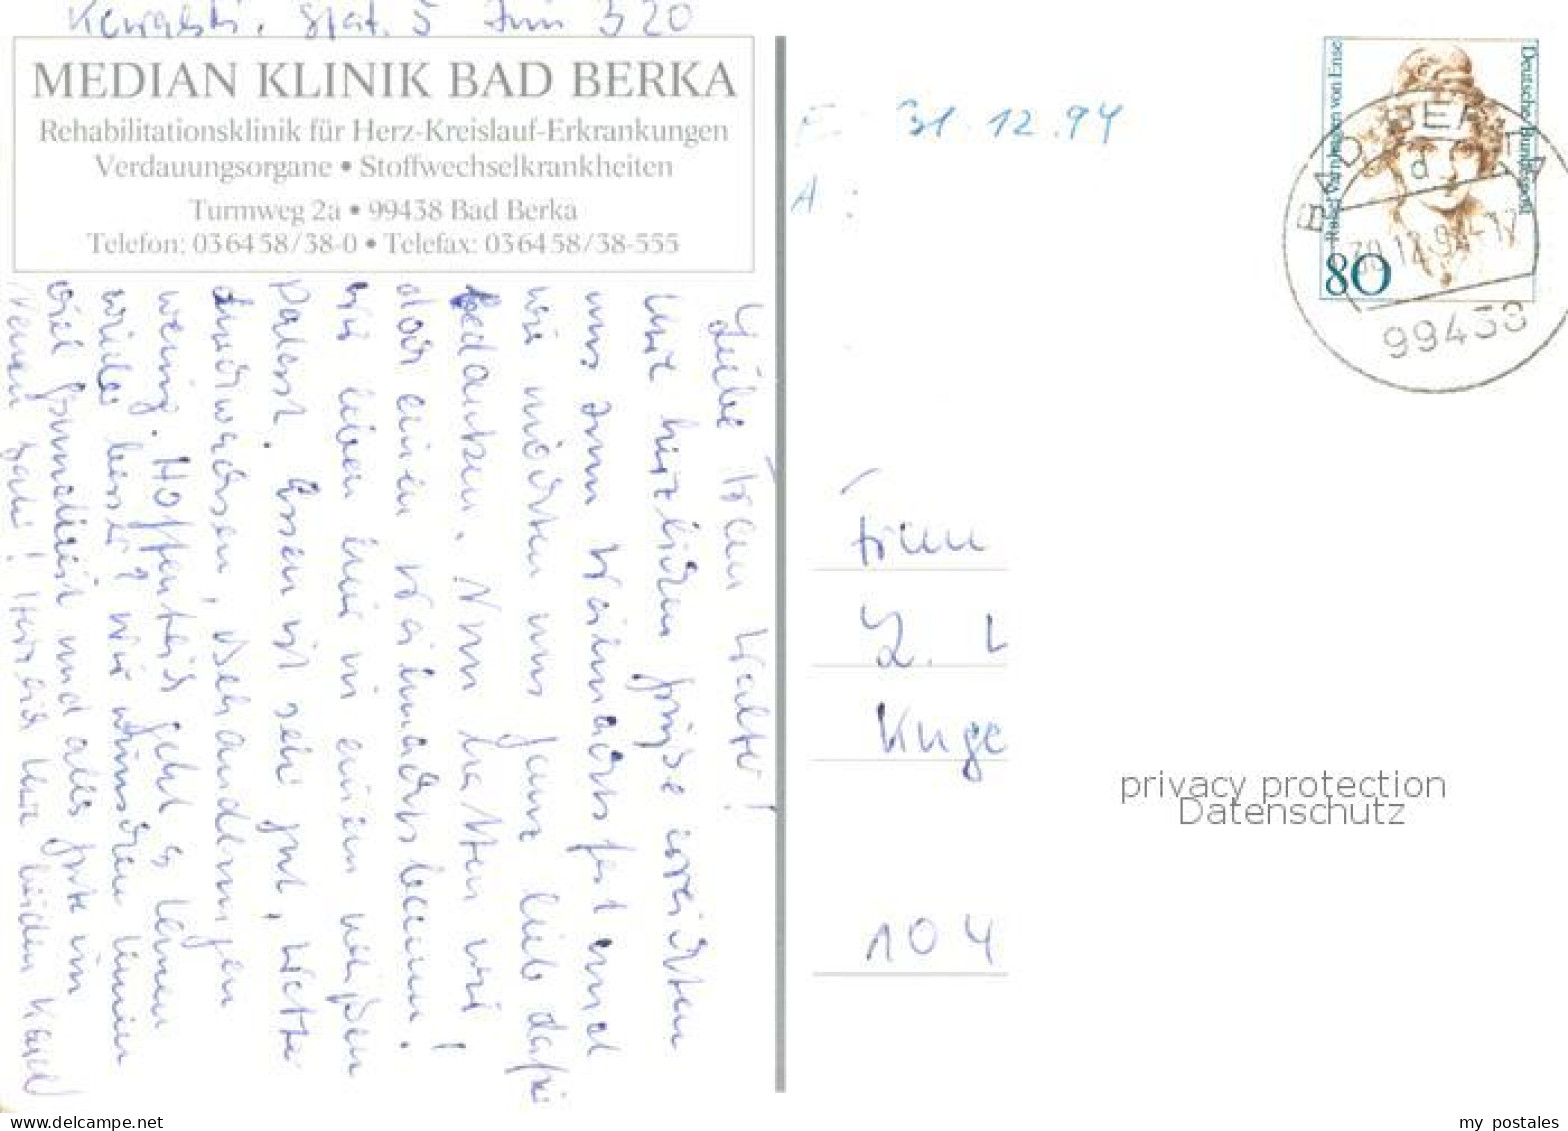 Kewalski, Stat. 5 Zim 320
MEDIAN KLINIK BAD BERKA
Rehabilitationsklinik für Herz-Kreislauf-Erkrankungen
Verdauungsorgane • Stoffwechselkrankheiten
Turmweg 2a • 99438 Bad Berka
Telefon: 036458/38-0 • Telefax: 036458/38-555
Liebe Frau Walter!
Ihre herzlichen Grüße erreichten
uns zum Weihnachtsfest und
wir möchten uns ganz lieb dafür
bedanken. Nun hatten wir
doch einen Weihnachtsbaum!
Wir leben hier in einem weißen
Palast. Essen ist sehr gut, Wetter
durchwachsen, Behandlungen
wenig. Hoffentlich geht es Ihnen
wieder besser? Wir wünschen Ihnen
viel Gesundheit und alles Gute im
Neuen Jahr! Herzlich Ihre beiden
E: 31.12.94
A:
Deutsche Bundespost
Rahel Varnhagen von Ense
80
BAD BERKA
d
30.12.94-17
99438
Frau
L
Kuge
104
privacy protection
Datenschutz
www.delcampe.net
my_postales